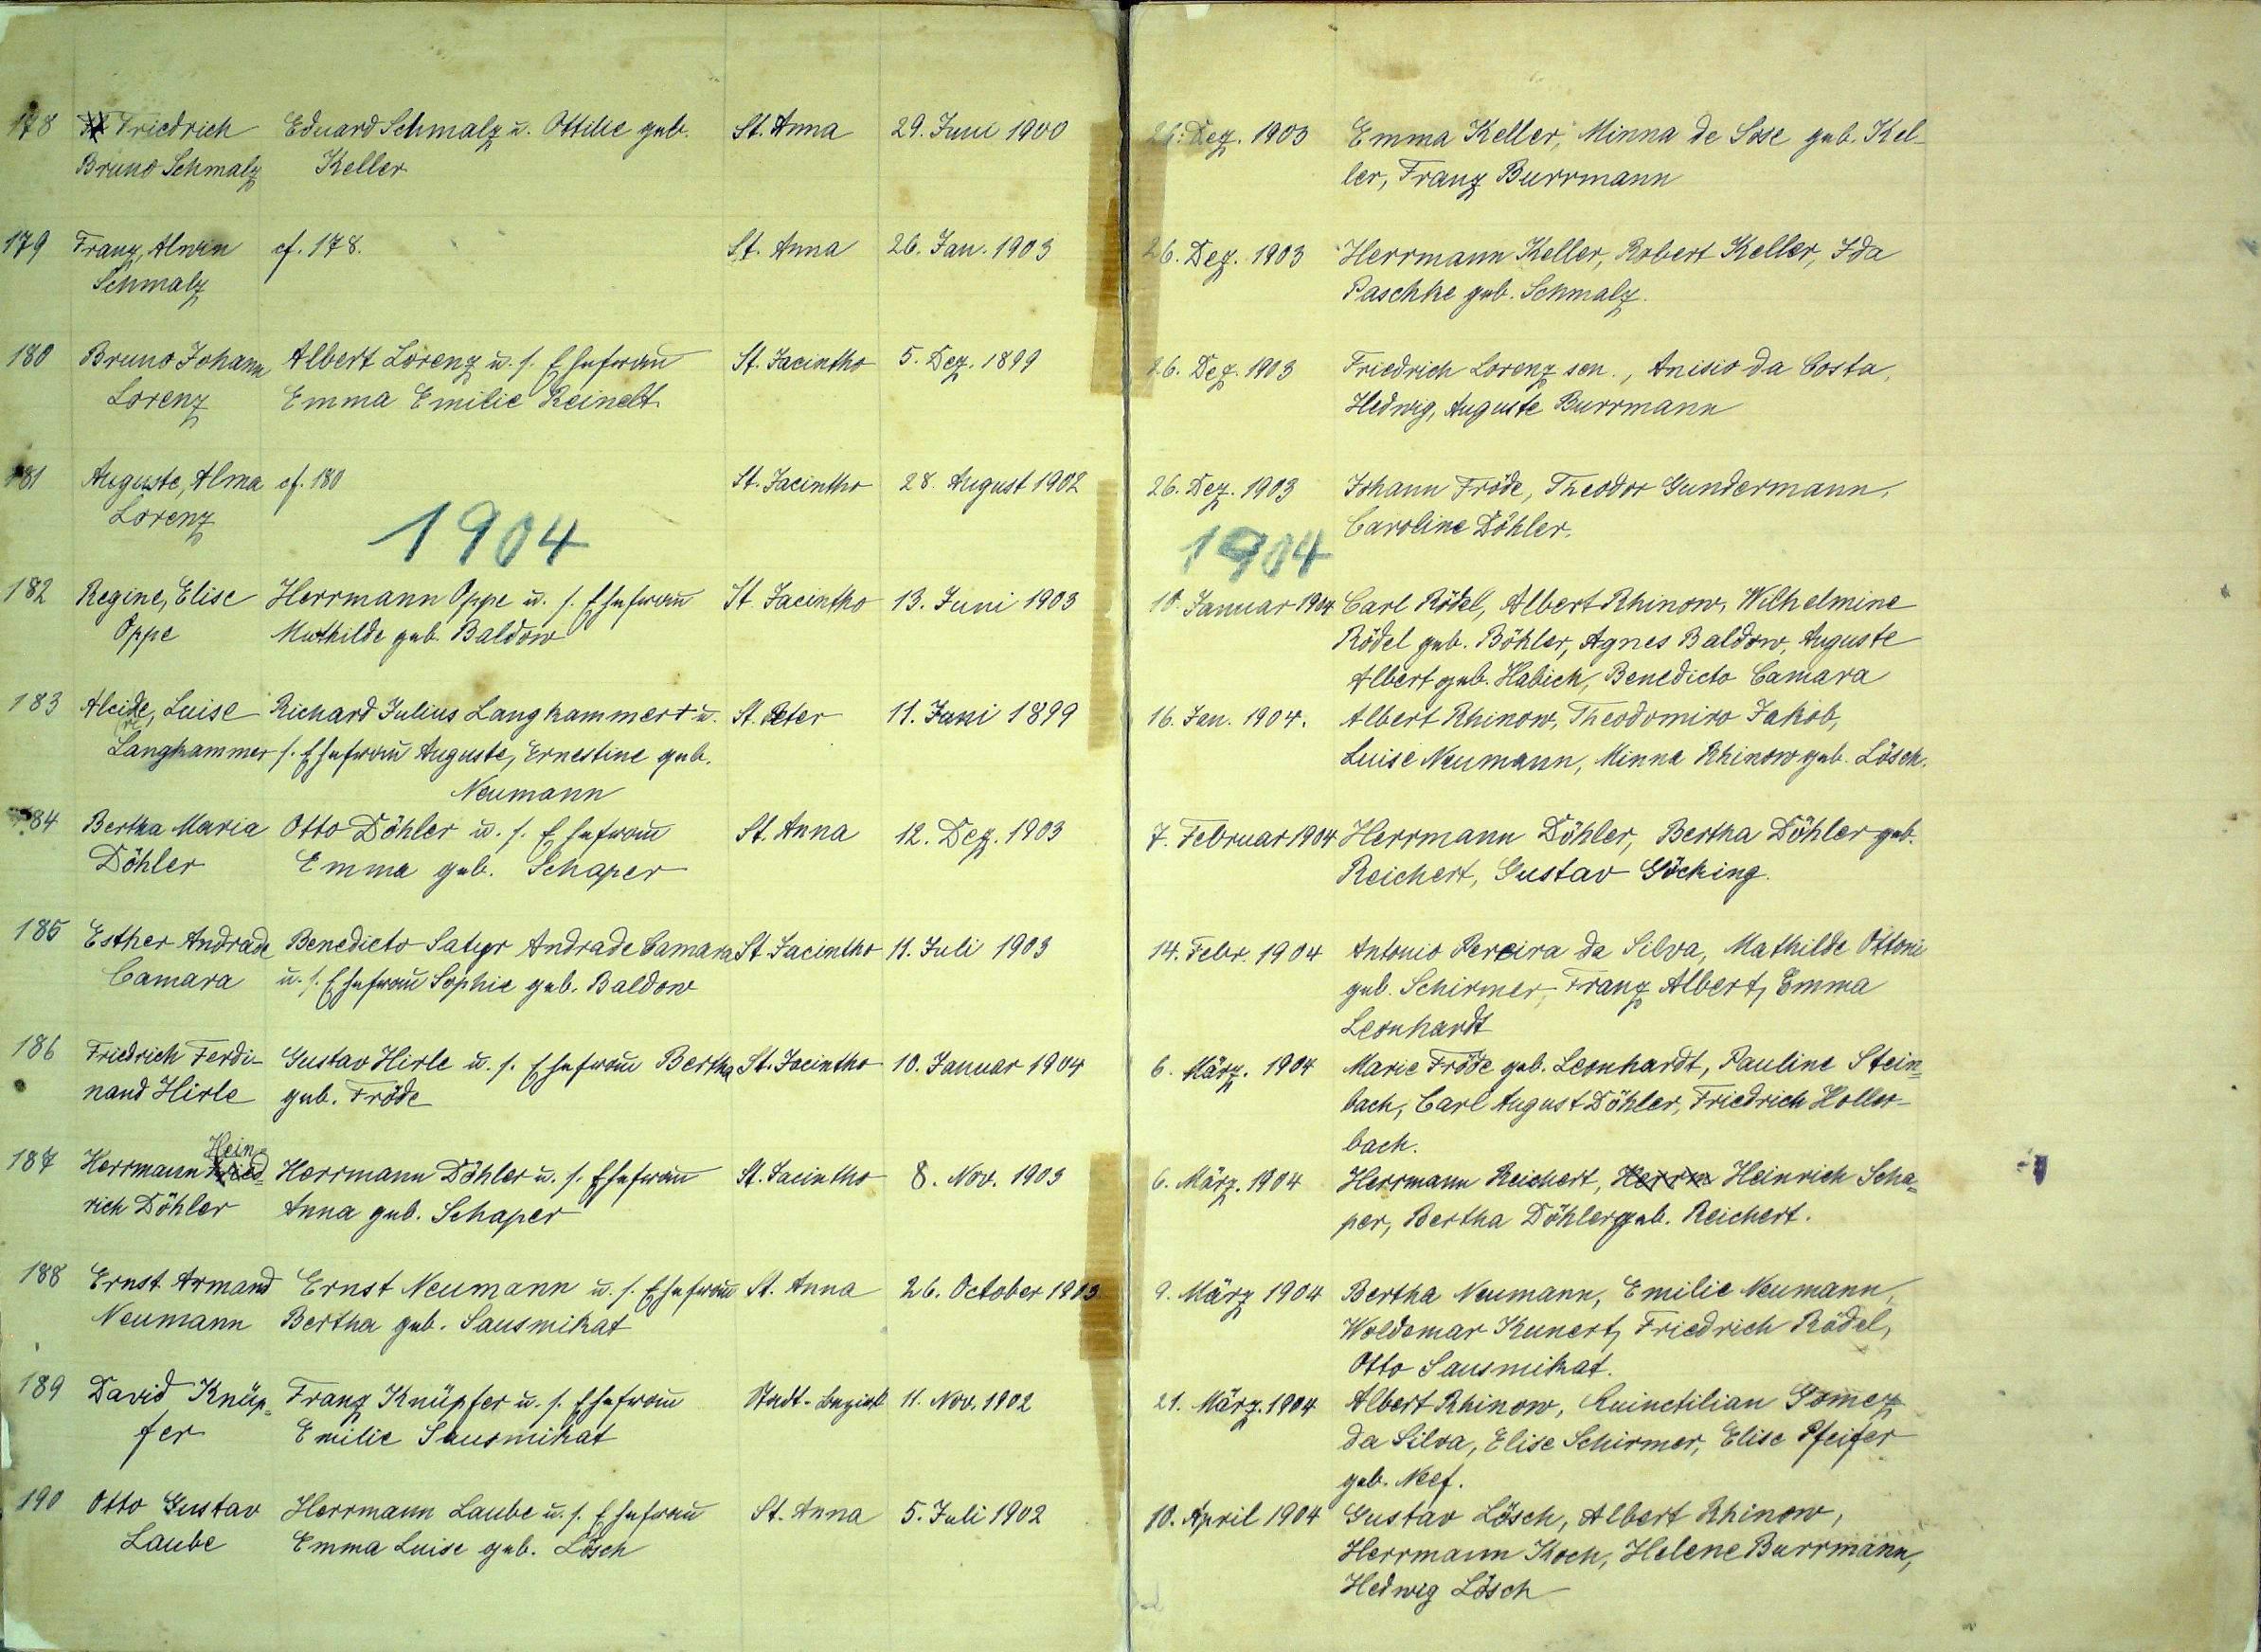 178 Friedrich Eduard Schmalz u. Ottilie geb. St. Anna 29. Juni 1900 26. Dez. 1903 Emma Keller, Minna de Sose geb. Kel-
Bruno Schmalz Keller ler, Franz Burrmann
179 Franz, Alwin cf. 178. St. Anna 26. Jan. 1903 26. Dez. 1903 Herrmann Keller, Robert Keller, Ida
Schmalz Paschke geb. Schmalz.
180 Bruno Johann Albert Lorenz u. s. Ehefrau St. Jacintho 5. Dez. 1899 26. Dez. 1903 Friedrich Lorenz sen., Anisio da Costa,
Lorenz Emma Emilie Reinelt. Hedwig, Auguste Burrmann
181 Auguste, Alma cf. 180 St. Jacintho 28. August 1902 26. Dez. 1903 Johann Fröde, Theodor Gundermann,
Lorenz Caroline Döhler.
1904 1904
182 Regine, Elise Herrmann Oppe u. s. Ehefrau St. Jacintho 13. Juni 1903 10. Januar 1904 Carl Rödel, Albert Rhinow, Wilhelmine
Oppe Mathilde geb. Baldow Rödel geb. Böhler, Agnes Baldow, Auguste
Albert geb. Habich, Benedicto Camara
183 Alcide, Luise Richard Julius Langhammer u. St. Peter 11. Juni 1899 16. Jan. 1904. Albert Rhinow, Theodomiro Jakob,
Langhammer s. Ehefrau Auguste, Ernestine geb. Luise Neumann, Minna Rhinow geb. Lösch.
Neumann
184 Bertha Maria Otto Döhler u. s. Ehefrau St. Anna 12. Dez. 1903 7. Februar 1904 Herrmann Döhler, Bertha Döhler geb.
Döhler Emma geb. Schaper Reichert, Gustav Göcking.
185 Esther Andrade Benedicto Satyr Andrade Camara St. Jacintho 11. Juli 1903 14. Febr. 1904 Antonio Pereira da Silva, Mathilde Ottoni
Camara u. s. Ehefrau Sophie geb. Baldow geb. Schirmer, Franz Albert, Emma
Leonhardt
186 Friedrich Ferdi- Gustav Hirle u. s. Ehefrau Bertha St. Jacintho 10. Januar 1904 6. März. 1904 Marie Fröde geb. Leonhardt, Pauline Stein=
nand Hirle geb. Fröde bach, Carl August Döhler, Friedrich Holler-
bach.
187 Herrmann Hein= Herrmann Döhler u. s. Ehefrau St. Jacintho 8. Nov. 1903 6. März. 1904 Herrmann Reichert, Herrm Heinrich Scha=
rich Döhler Anna geb. Schaper per, Bertha Döhler geb. Reichert.
188 Ernst Armand Ernst Neumann u. s. Ehefrau St. Anna 26. October 1903 9. März 1904 Bertha Neumann, Emilie Neumann,
Neumann Bertha geb. Sausmikat Woldemar Kunert, Friedrich Rödel,
Otto Sausmikat.
189 David Knüp= Franz Knüpfer u. s. Ehefrau Stadt-bezirk 11. Nov. 1902 21. März. 1904 Albert Rhinow, Quinctilian Gomez
fer Emilie Sausmikat da Silva, Elise Schirmer, Elise Pfeifer
geb. Neef.
190 Otto Gustav Herrmann Laube u. s. Ehefrau St. Anna 5. Juli 1902 10. April 1904 Gustav Lösch, Albert Rhinow,
Laube Emma Luise geb. Lösch Herrmann Koch, Helene Burrmann,
Hedwig Lösch